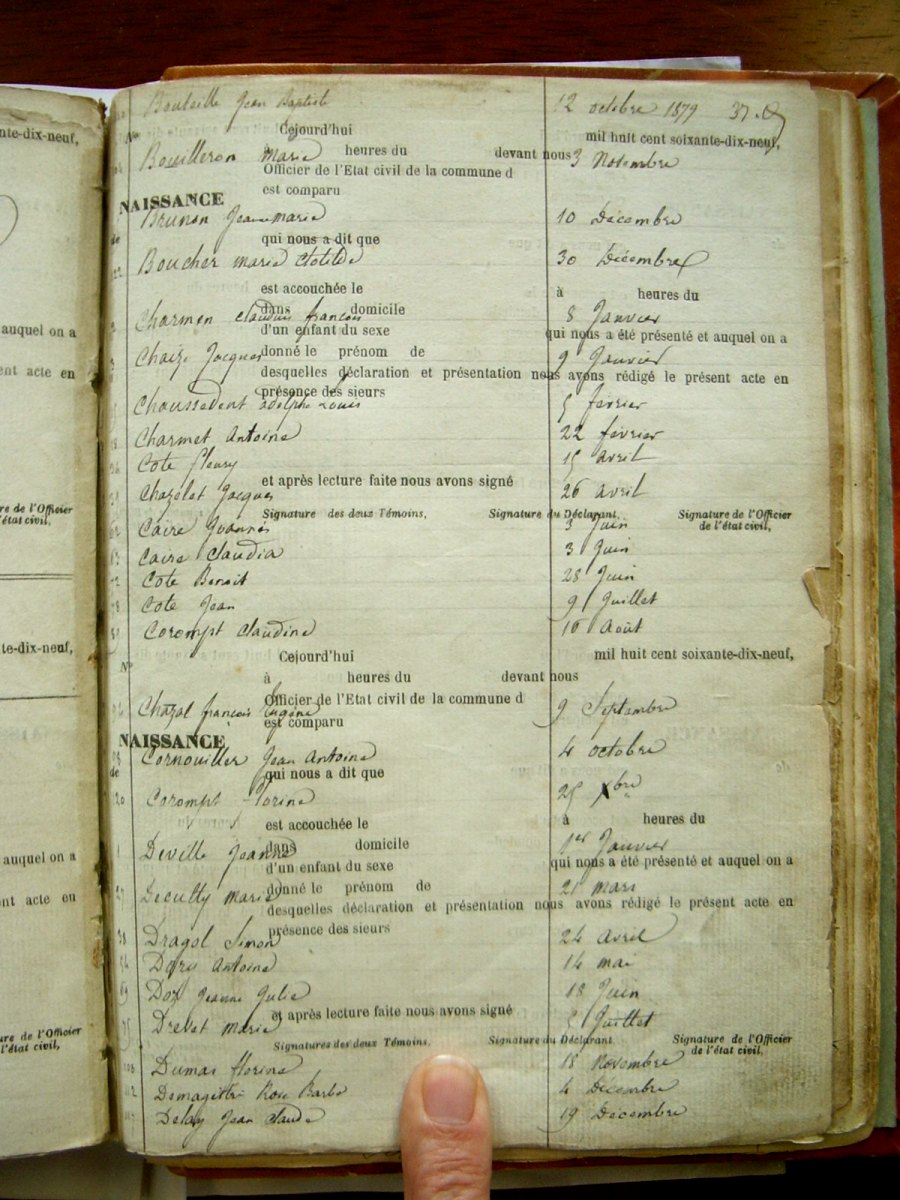 Bouteille Jean Baptiste 12 octobre 1879 37.
ante-dix-neuf,
N° Cejourd'hui mil huit cent soixante-dix-neuf,
Bouilleron Marie heures du devant nous 3 Novembre
Officier de l'Etat civil de la commune d
est comparu
NAISSANCE
Brunon Jeanne marie 10 Décembre
de qui nous a dit que
122 Boucher marie Clotilde 30 Décembre
est accouchée le à heures du
Charmen Claudius françois 8 Janvier
dans domicile
auquel on a d'un enfant du sexe qui nous a été présenté et auquel on a
Chaize Jacques donné le prénom de 9 Janvier
ent acte en desquelles déclaration et présentation nous avons rédigé le présent acte en
présence des sieurs
Chaussedent adolphe Louis 5 février
Charmet Antoine 22 février
Cote fleury 15 avril
et après lecture faite nous avons signé
Chazelet Jacques 26 avril
re de l'Officier Signature des deux Témoins, Signature du Déclarant, Signature de l'Officier
l'état civil, de l'état civil,
Caire Joannès 3 Juin
Caire Claudia 3 Juin
Cote Benoit 28 Juin
Cote Jean 9 Juillet
Corompt Claudine 10 Août
te-dix-neuf, N° Cejourd'hui mil huit cent soixante-dix-neuf,
à heures du devant nous
Officier de l'Etat civil de la commune d
Chazal françois Eugène 9 Septembre
est comparu
NAISSANCE
Cornouiller Jean Antoine 4 octobre
de qui nous a dit que
120 Corompt florine 25 Xbre
est accouchée le à heures du
1 Deville Jeanne 1er Janvier
dans domicile
auquel on a d'un enfant du sexe qui nous a été présenté et auquel on a
donné le prénom de
Marie 21 mars
ent acte en desquelles déclaration et présentation nous avons rédigé le présent acte en
présence des sieurs
38 Dragol Simon 24 avril
Antoine 14 mai
Jeanne Julie 18 Juin
et après lecture faite nous avons signé
Drevet marie 5 Juillet
ure de l'Officier Signatures des deux Témoins, Signature du Déclarant, Signature de l'Officier
l'état civil, de l'état civil,
Dumas florine 18 Novembre
112 Rose Barbe 4 Décembre
Delay Jean Claude 19 Décembre